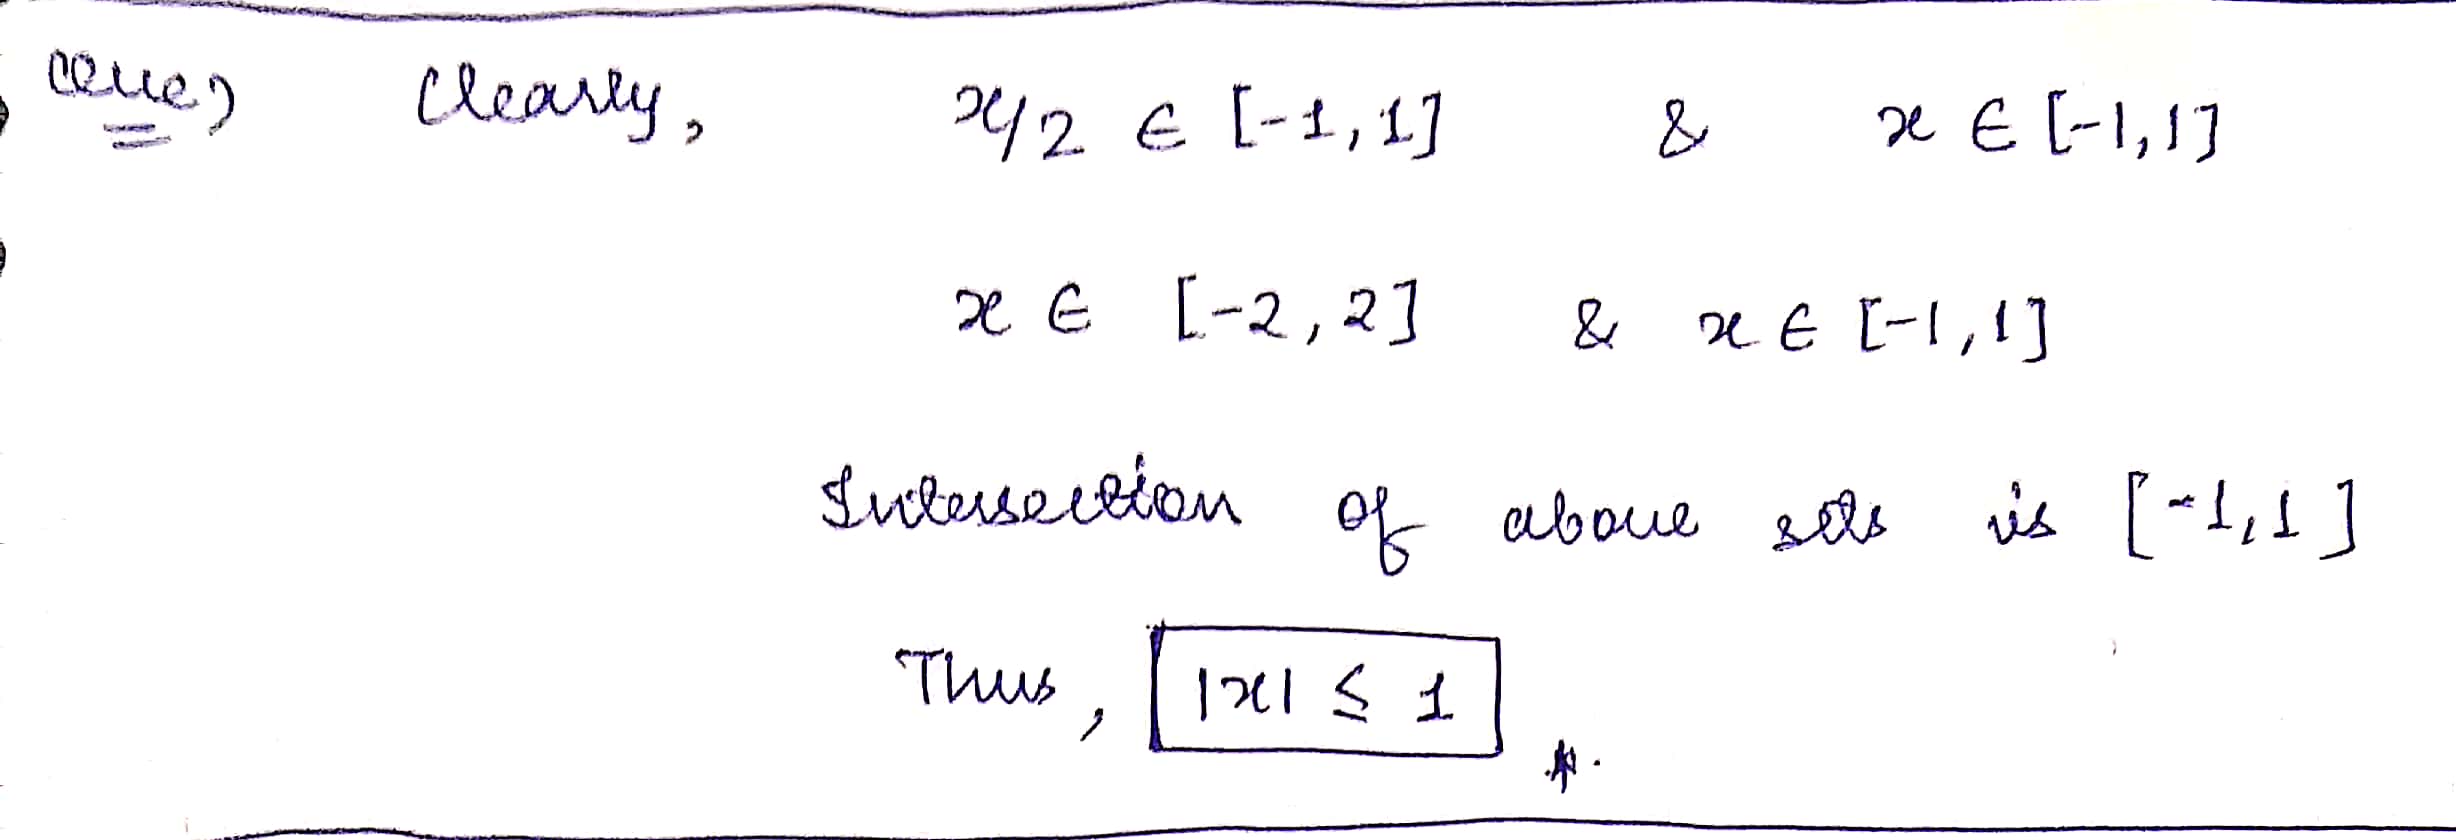 Clearly, x/2 ∈ [-1, 1] & x ∈ [-1, 1]
x ∈ [-2, 2] & x ∈ [-1, 1]
Intersection of above sets is [-1, 1]
Thus, |x| ≤ 1